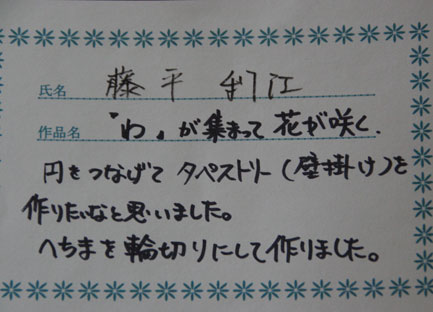 氏名 藤平 利江
作品名 「わ」が集まって花が咲く.
円をつなげて タペストリー(壁掛け)を
作りたいなと思いました。
へちまを輪切りにして作りました。